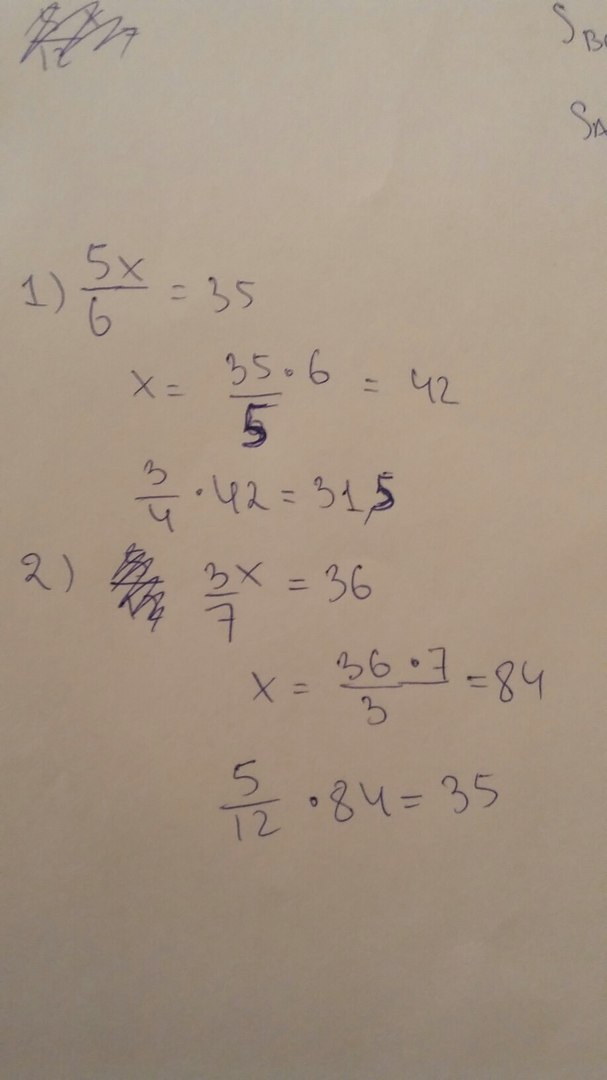 1) 5x/6 = 35
x = 35·6/5 = 42
3/4 · 42 = 31,5
2) 3/7 x = 36
x = 36·7/3 = 84
5/12 · 84 = 35